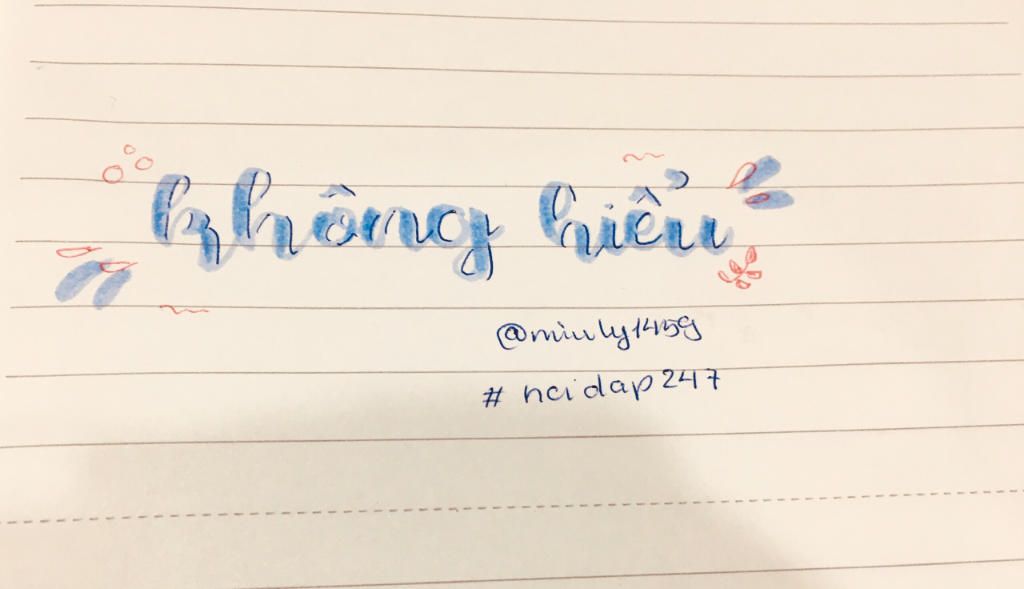 không hiểu
@miuly1459
# hoidap247